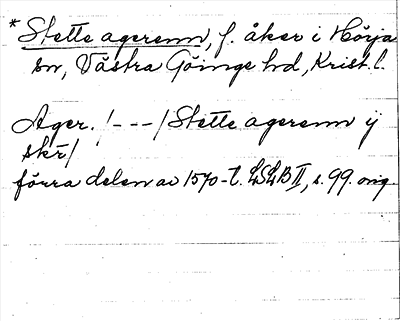 * Stette agerenn, f. åker i Hörja
sn, Västra Göinge hd, Krist. l.
Ager. /---/ Stette agerenn ij
skr/
förra delen av 1570-t. LSLB II, s. 99. orig.